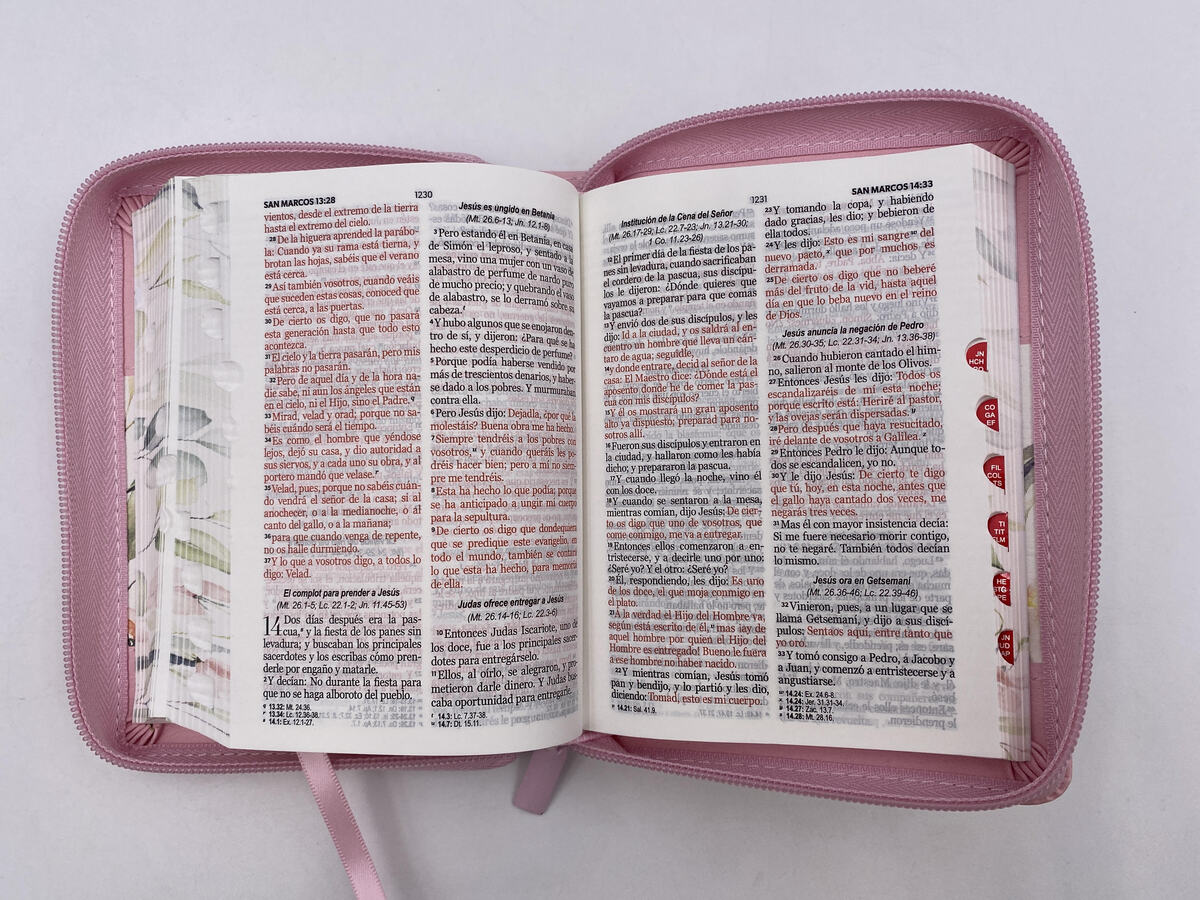 SAN MARCOS 13:28
1230
vientos, desde el extremo de la tierra
hasta el extremo del cielo.
28 De la higuera aprended la parábo-
la: Cuando ya su rama está tierna, y
brotan las hojas, sabéis que el verano
está cerca.
29 Así también vosotros, cuando veáis
que suceden estas cosas, conoced que
está cerca, a las puertas.
30 De cierto os digo, que no pasará
esta generación hasta que todo esto
acontezca.
31 El cielo y la tierra pasarán, pero mis
palabras no pasarán.
32 Pero de aquel día y de la hora na-
die sabe, ni aun los ángeles que están
en el cielo, ni el Hijo, sino el Padre. q
33 Mirad, velad y orad; porque no sa-
béis cuándo será el tiempo.
34 Es como el hombre que yéndose
lejos, dejó su casa, y dio autoridad a
sus siervos, y a cada uno su obra, y al
portero mandó que velase. r
35 Velad, pues, porque no sabéis cuán-
do vendrá el señor de la casa; si al
anochecer, o a la medianoche, o al
canto del gallo, o a la mañana;
36 para que cuando venga de repente,
no os halle durmiendo.
37 Y lo que a vosotros digo, a todos lo
digo: Velad.
El complot para prender a Jesús
(Mt. 26.1-5; Lc. 22.1-2; Jn. 11.45-53)
14 Dos días después era la pas-
cua, s y la fiesta de los panes sin
levadura; y buscaban los principales
sacerdotes y los escribas cómo pren-
derle por engaño y matarle.
2 Y decían: No durante la fiesta para
que no se haga alboroto del pueblo.
q 13.32: Mt. 24.36.
r 13.34: Lc. 12.36-38.
s 14.1: Ex. 12.1-27.
Jesús es ungido en Betania
(Mt. 26.6-13; Jn. 12.1-8)
3 Pero estando él en Betania, en casa
de Simón el leproso, y sentado a la
mesa, vino una mujer con un vaso de
alabastro de perfume de nardo puro
de mucho precio; y quebrando el vaso
de alabastro, se lo derramó sobre su
cabeza. t
4 Y hubo algunos que se enojaron den-
tro de sí, y dijeron: ¿Para qué se ha
hecho este desperdicio de perfume?
5 Porque podía haberse vendido por
más de trescientos denarios, y haber-
se dado a los pobres. Y murmuraban
contra ella.
6 Pero Jesús dijo: Dejadla, ¿por qué la
molestáis? Buena obra me ha hecho.
7 Siempre tendréis a los pobres con
vosotros, u y cuando queráis les po-
dréis hacer bien; pero a mí no siem-
pre me tendréis.
8 Esta ha hecho lo que podía; porque
se ha anticipado a ungir mi cuerpo
para la sepultura.
9 De cierto os digo que dondequiera
que se predique este evangelio, en
todo el mundo, también se contará
lo que esta ha hecho, para memoria
de ella.
Judas ofrece entregar a Jesús
(Mt. 26.14-16; Lc. 22.3-6)
10 Entonces Judas Iscariote, uno de
los doce, fue a los principales sacer-
dotes para entregárselo.
11 Ellos, al oírlo, se alegraron, y pro-
metieron darle dinero. Y Judas bus-
caba oportunidad para entregarle.
t 14.3: Lc. 7.37-38.
u 14.7: Dt. 15.11.
1231
SAN MARCOS 14:33
Institución de la Cena del Señor
(Mt. 26.17-29; Lc. 22.7-23; Jn. 13.21-30;
1 Co. 11.23-26)
12 El primer día de la fiesta de los pa-
nes sin levadura, cuando sacrificaban
el cordero de la pascua, sus discípu-
los le dijeron: ¿Dónde quieres que
vayamos a preparar para que comas
la pascua?
13 Y envió dos de sus discípulos, y les
dijo: Id a la ciudad, y os saldrá al en-
cuentro un hombre que lleva un cán-
taro de agua; seguidle,
14 y donde entrare, decid al señor de la
casa: El Maestro dice: ¿Dónde está el
aposento donde he de comer la pas-
cua con mis discípulos?
15 Y él os mostrará un gran aposento
alto ya dispuesto; preparad para no-
sotros allí.
16 Fueron sus discípulos y entraron en
la ciudad, y hallaron como les había
dicho; y prepararon la pascua.
17 Y cuando llegó la noche, vino él
con los doce.
18 Y cuando se sentaron a la mesa,
mientras comían, dijo Jesús: De cier-
to os digo que uno de vosotros, que
come conmigo, me va a entregar.
19 Entonces ellos comenzaron a en-
tristecerse, y a decirle uno por uno:
¿Seré yo? Y el otro: ¿Seré yo?
20 Él, respondiendo, les dijo: Es uno
de los doce, el que moja conmigo en
el plato.
21 A la verdad el Hijo del Hombre va,
según está escrito de él, v mas ¡ay de
aquel hombre por quien el Hijo del
Hombre es entregado! Bueno le fuera
a ese hombre no haber nacido.
22 Y mientras comían, Jesús tomó
pan y bendijo, y lo partió y les dio,
diciendo: Tomad, esto es mi cuerpo.
14.21: Sal. 41.9.
23 Y tomando la copa, y habiendo
dado gracias, les dio; y bebieron de
ella todos.
24 Y les dijo: Esto es mi sangre w del
nuevo pacto, x que por muchos es
derramada.
25 De cierto os digo que no beberé
más del fruto de la vid, hasta aquel
día en que lo beba nuevo en el reino
de Dios.
Jesús anuncia la negación de Pedro
(Mt. 26.30-35; Lc. 22.31-34; Jn. 13.36-38)
26 Cuando hubieron cantado el him-
no, salieron al monte de los Olivos.
27 Entonces Jesús les dijo: Todos os
escandalizaréis de mí esta noche;
porque escrito está: Heriré al pastor,
y las ovejas serán dispersadas. y
28 Pero después que haya resucitado,
iré delante de vosotros a Galilea. z
29 Entonces Pedro le dijo: Aunque to-
dos se escandalicen, yo no.
30 Y le dijo Jesús: De cierto te digo
que tú, hoy, en esta noche, antes que
el gallo haya cantado dos veces, me
negarás tres veces.
31 Mas él con mayor insistencia decía:
Si me fuere necesario morir contigo,
no te negaré. También todos decían
lo mismo.
Jesús ora en Getsemaní
(Mt. 26.36-46; Lc. 22.39-46)
32 Vinieron, pues, a un lugar que se
llama Getsemaní, y dijo a sus discí-
pulos: Sentaos aquí, entre tanto que
yo oro.
33 Y tomó consigo a Pedro, a Jacobo y
a Juan, y comenzó a entristecerse y a
angustiarse.
14.24: Ex. 24.6-8.
14.24: Jer. 31.31-34.
14.27: Zac. 13.7.
14.28: Mt. 28.16.
JN
HCH
CO
GA
EF
FIL
COL
TS
TI
TIT
FLM
HE
STG
PE
JN
JUD
AP